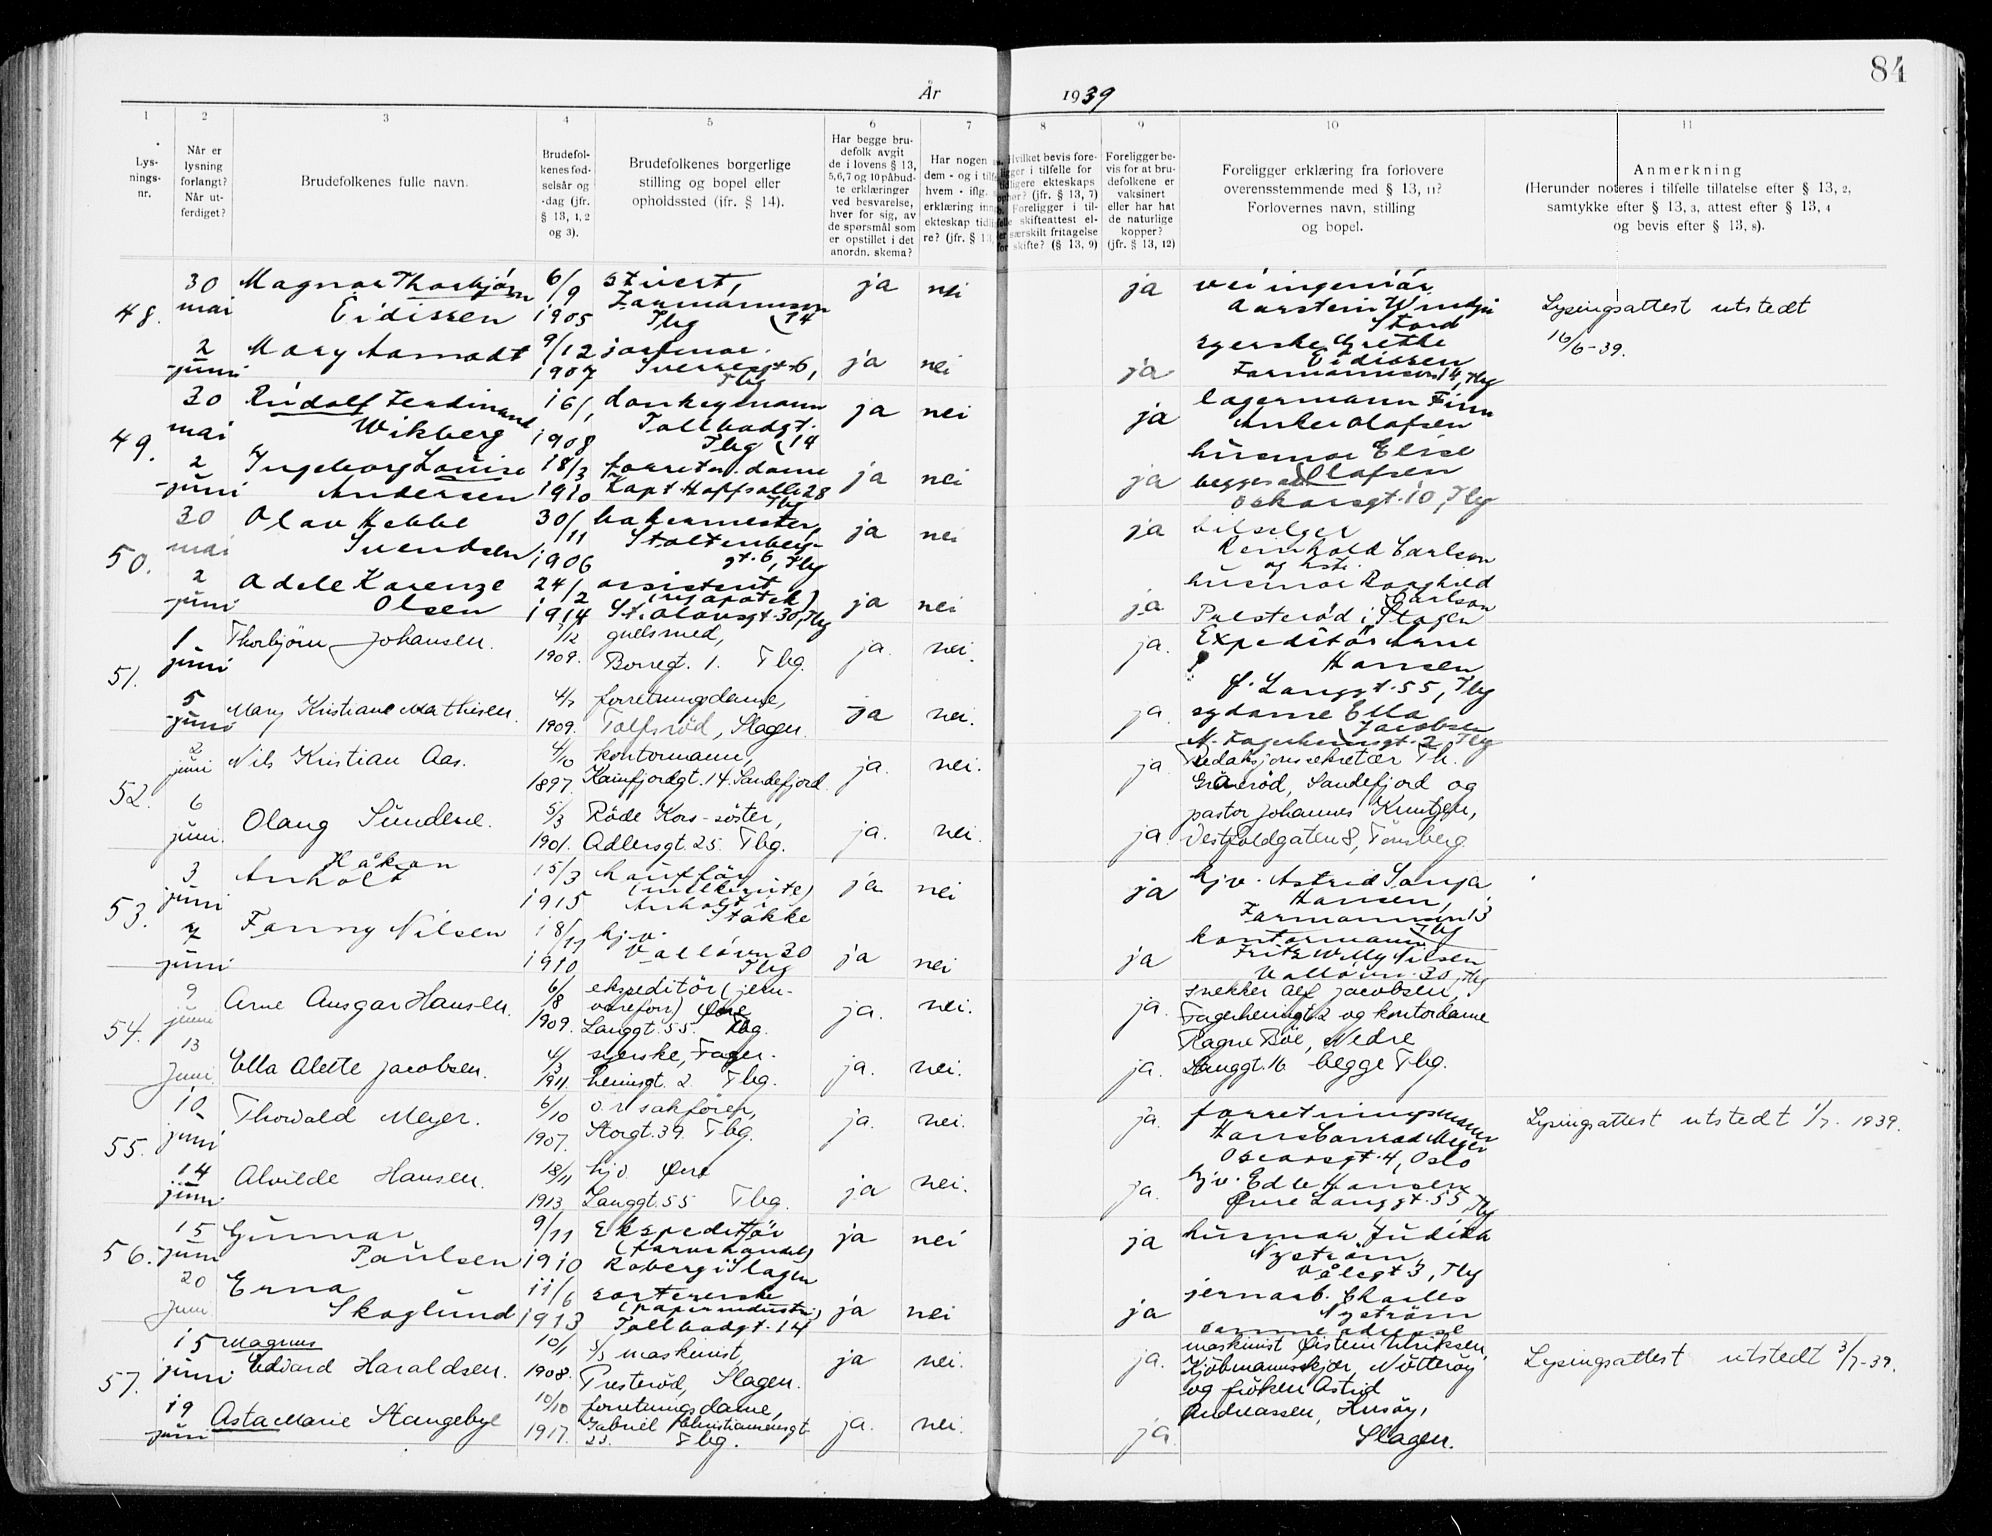 84
År 1939
1 2 3 4 5 6 7 8 9 10 11
Lys-
nings-
nr.
Når er
lysning
forlangt?
Når ut-
ferdiget?
Brudefolkenes fulle navn.
Brudefol-
kenes fød-
selsår og
-dag (jfr.
§ 13, 1, 2
og 3).
Brudefolkenes borgerlige
stilling og bopel eller
opholdssted (jfr. § 14).
Har begge bru-
defolk avgit
de i lovens § 13,
5, 6, 7 og 10 påbud-
te erklæringer
ved besvarelse,
hver for sig, av
de spørsmål som
er opstillet i det
anordn. skema?
Har nogen a
dem - og i tilfe
hvem - iflg.
erklæring inng
ekteskap tidlig
re? (jfr. § 13,
Hvilket bevis fore-
ligger i tilfelle for
tidligere ekteskaps
ophør? (jfr. § 13, 7)
Foreligger i til-
felle skifteattest el-
ler særskilt fritagelse
for skifte? (§ 13, 9)
Foreligger be-
vis for at bru-
defolkene er
vaksinert
eller har hat
de naturlige
kopper?
(jfr. § 13, 12)
Foreligger erklæring fra forlovere
overensstemmende med § 13, 11?
Forlovernes navn, stilling
og bopel.
Anmerkning
(Herunder noteres i tilfelle tillatelse efter § 13, 2,
samtykke efter § 13, 3, attest efter § 13, 4
og bevis efter § 13, 8).
48.
30
mai
Magnar Thorbjørn
Eidissen
6/9
1905
stuert,
Farmannsvn
14
Tbg
ja nei ja
veiingeniør
Aarstein Windju
Stord
Lysingsattest utstedt
16/6-39.
2
juni
Mary Aamodt
9/12
1907
jordmor.
Sverresgt 6,
Tbg
ja nei ja
syerske Grethe
Eidissen
Farmannsvn 14, Tbg
49.
30
mai
Rudolf Ferdinand
Wikberg
16/1
1908
donkeymann
Tollbodgt.
Tbg 14
ja nei ja
lagermann Finn
Anker Olafsen
2
juni
Ingeborg Louise
Andersen
18/3
1910
forretn. dame
Kapt Hoffsalle 28
Tbg
ja nei ja
husmor Elise
Olafsen
begges adr
Oskarsgt. 10, Tbg
50.
30
mai
Olav Hebbe
Svendsen
30/11
1906
bakermester,
Stoltenberg-
gt. 6, Tbg
ja nei ja
bilselger
Reinhold Carlson
og hstr.
2
juni
Adele Karenze
Olsen
24/2
1914
assistent
(i apotek)
St. Olavsgt. 30, Tbg
ja nei ja
husmor Ragnhild
Carlson
Presterød i Slagen
51.
1
juni
Thorbjørn Johansen.
7/12
1909.
gullsmed,
Borregt. 1. Tbg.
ja. nei. ja.
Expeditør Arne
Hansen
Ø. Langgt. 55, Tbg
5
juni
Mary Kristiane Mathisen.
4/7
1909.
forretningsdame,
Tolfsrød, Slagen.
ja nei. ja.
sydame Ella
Jacobsen
N. Fagerheimsgt. 2, Tbg
52.
2
juni
Nils Kristian Aas.
4/10
1897.
kontormann,
Kamfjordgt. 14. Sandefjord.
ja. nei. ja.
Redaksjonssekretær Th.
Granerød, Sandefjord og
6
juni.
Olaug Sundene.
5/3
1901.
Røde Kors-søster,
Adlersgt. 25. Tbg.
ja. nei. ja.
pastor Johannes Knutzen,
Vestfoldgaten 8, Tønsberg.
53.
3
juni
Håkon
Anholt
15/3
1915
chauffør
(melkerute)
Anholt i
Stokke
ja nei ja
hjv. Astrid Sonja
Hansen,
Farmannsvn 13
Tbg
7
juni
Fanny Nilsen
18/11
1910
hjv.
Valløvn 30
Tbg
ja nei ja
kontormann
Fritz Willy Nilsen
Valløvn. 30, Tbg
54.
9
juni
Arne Ansgar Hansen.
6/8
1909.
ekspeditør (jern-
vareforr) Øvre
Langgt. 55. Tbg.
ja. nei. ja.
snekker Alf Jacobsen,
Fagerheimgt 2 og kontordame
13
Juni
Ella Alette Jacobsen.
4/3
1911.
syerske, Fager-
heimsgt. 2. Tbg.
ja. nei. ja.
Ragne Bøe, Nedre
Langgt. 16 begge Tbg.
55.
10
juni
Thorvald Meyer.
6/10
1907.
o.r. sakfører,
Storgt. 39. Tbg.
ja. nei. ja.
forretningsmann
Hans Conrad Meyer
Oscarsgt. 4, Oslo
Lysingsattest utstedt 1/7. 1939.
14
juni
Alvilde Hansen.
18/11
1913.
hjv. Øvre
Langgt. 55 Tbg.
ja nei. ja.
hjv. Edle Hansen
Øvre Langgt. 55, Tbg
56.
15
juni
Gunnar
Paulsen
9/11
1910
Ekspeditør
(farvehandel)
Roberg i Slagen
ja nei ja
husmor Judith
Nystrøm
Vålegt 3, Tbg
20
Juni
Erna
Skoglund
11/6
1913
sortererske
(papirindustri)
Tollbodgt. 14
ja nei ja
jernarb. Charles
Nystrøm
samme adresse
57.
15
juni
Magnus
Edvard Haraldsen.
10/1
1908.
1/3 maskinist,
Presterød, Slagen.
ja nei. ja.
maskinist Øistein Ulriksen,
Kjøbmannskjær, Nøtterøy
Lysingsattest utstedt 3/7-39.
19
juni
Asta Marie Stangebye
10/10
1917.
forretningsdame,
Gabriel Christiansensgt
23. Tbg.
ja. nei. ja.
og frøken Astrid
Andreassen, Husøy,
Slagen.